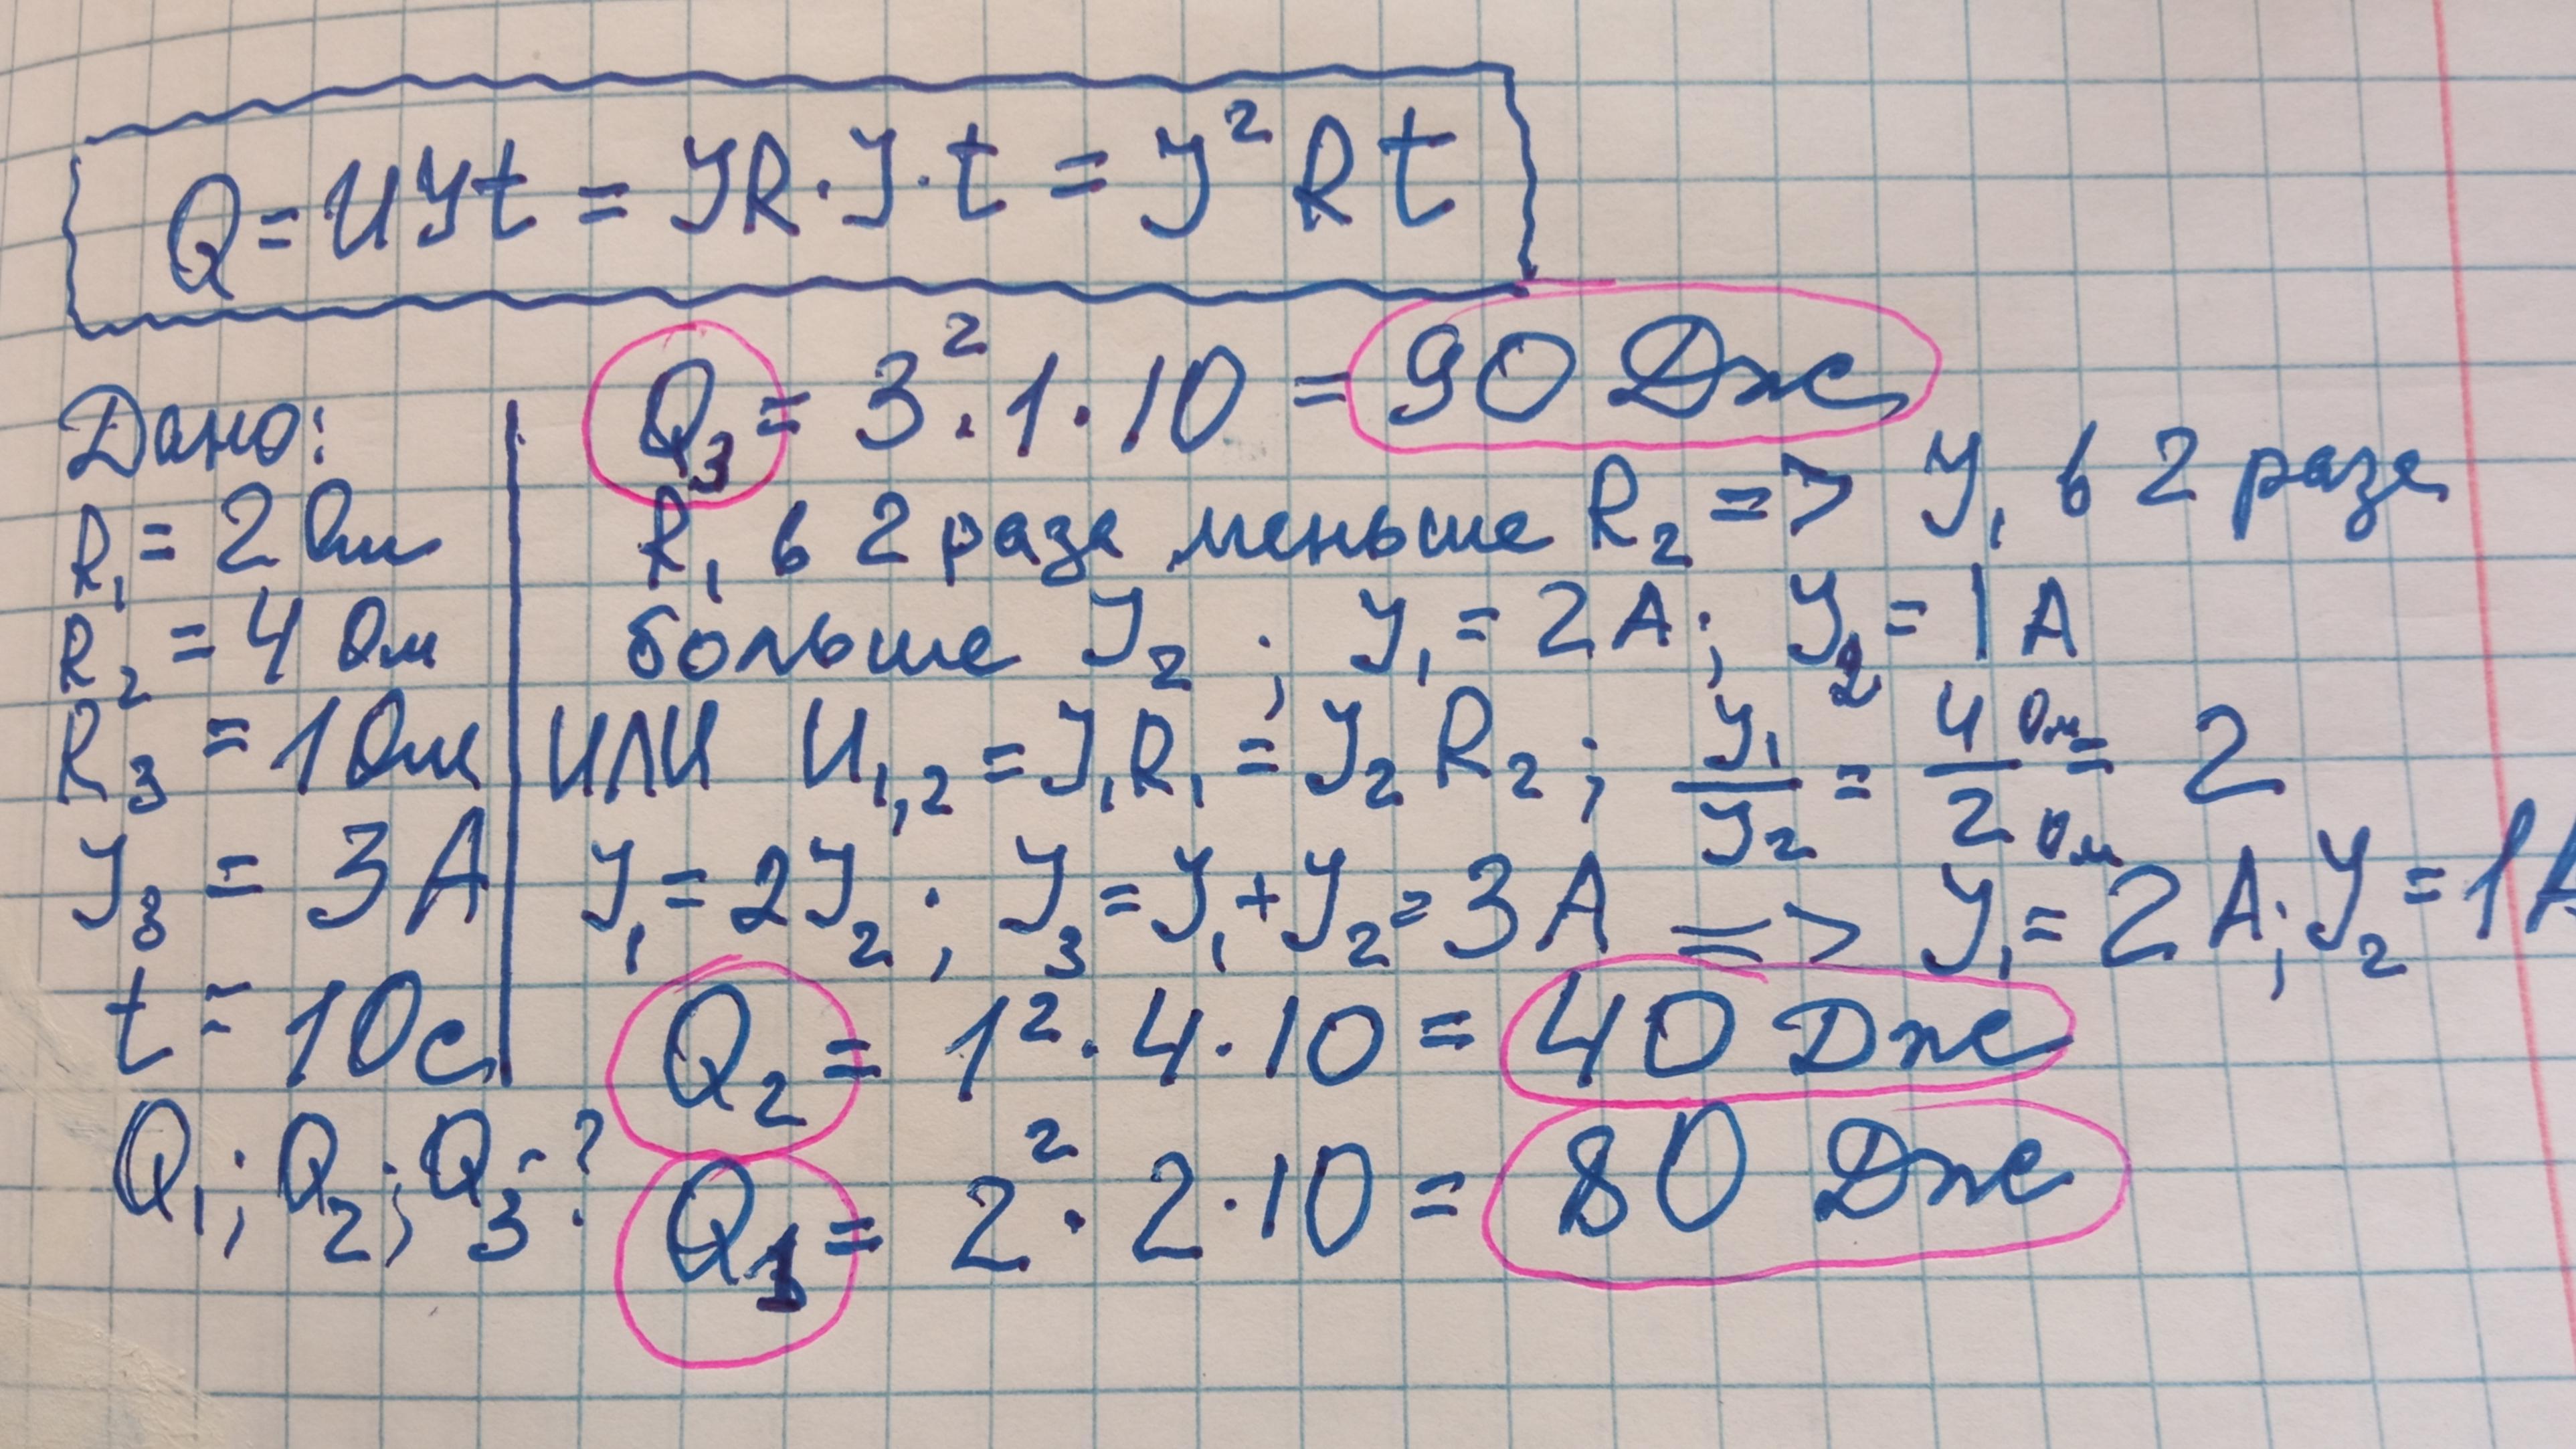 Q = UIt = IR · I · t = I² R t
Дано:
R₁ = 2 Ом
R₂ = 4 Ом
R₃ = 1 Ом
I₃ = 3 А
t = 10 с
Q₁; Q₂; Q₃ - ?
Q₃ = 3² · 1 · 10 = 90 Дж
R₁ в 2 раза меньше R₂ => I₁ в 2 раза
больше I₂ ; I₁ = 2 А ; I₂ = 1 А
ИЛИ U₁,₂ = I₁R₁ = I₂R₂ ; I₁/I₂ = 4 Ом/2 Ом = 2
I₁ = 2I₂ ; I₃ = I₁ + I₂ = 3 А => I₁ = 2 А ; I₂ = 1 А
Q₂ = 1² · 4 · 10 = 40 Дж
Q₁ = 2² · 2 · 10 = 80 Дж